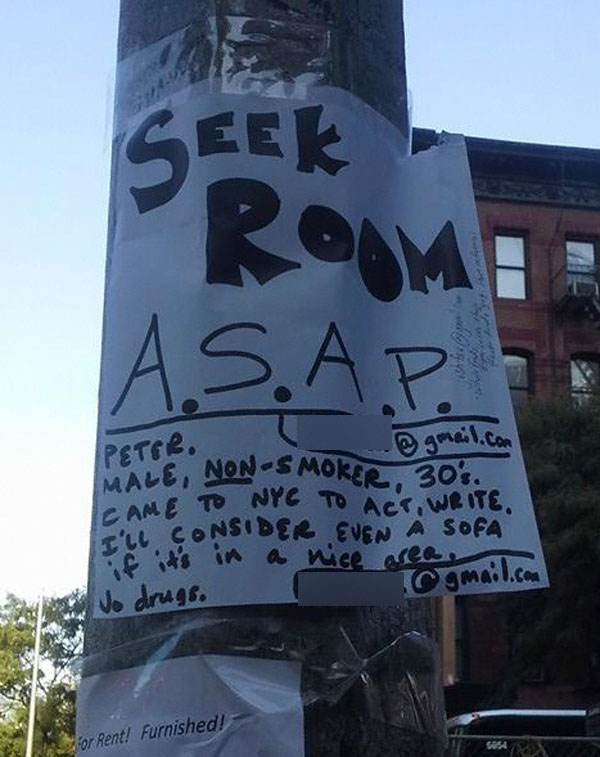 SEEK
ROOM
A.S.A.P.
@gmail.com
PETER.
MALE, NON-SMOKER, 30's.
CAME TO NYC TO ACT, WRITE.
I'LL CONSIDER EVEN A SOFA
if it's in a nice area.
No drugs.
@gmail.com
For Rent! Furnished!